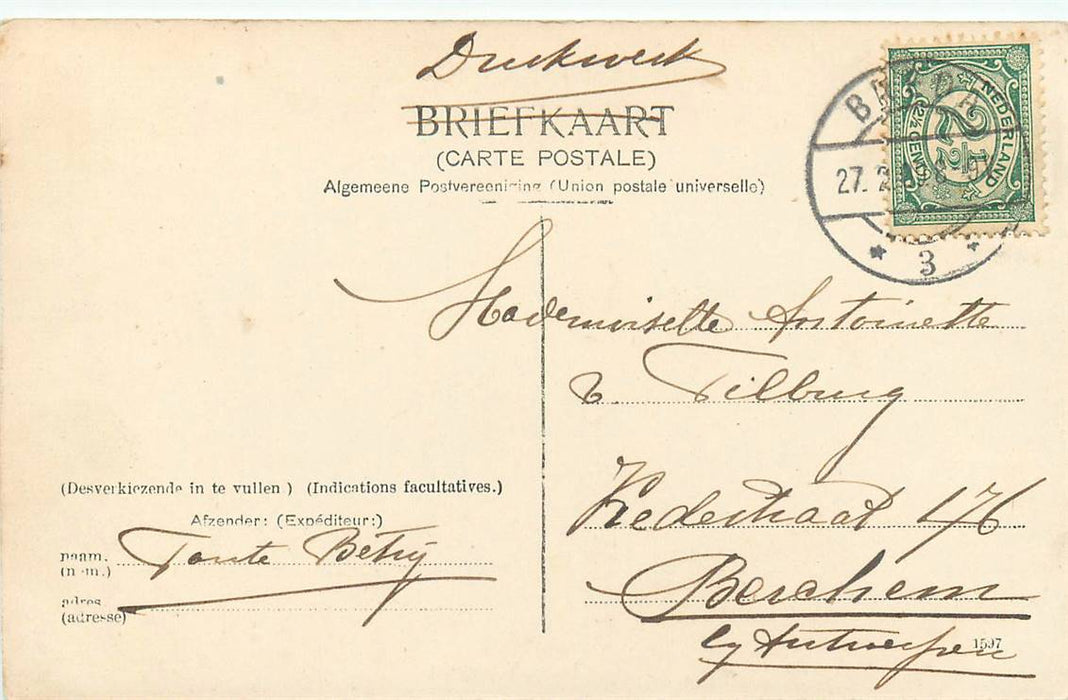 Drukwerk
BRIEFKAART
(CARTE POSTALE)
Algemeene Postvereeniging (Union postale universelle)
NEDERLAND
2½
2½ CENT
BREDA
27. 2
3
Mademoiselle Antoinette
v. Tilburg
straat 176
Berchem
by Antwerpen
1597
(Desverkiezende in te vullen) (Indications facultatives.)
Afzender: (Expéditeur:)
naam.
(nom.)
Tante Betsy
adres
(adresse)